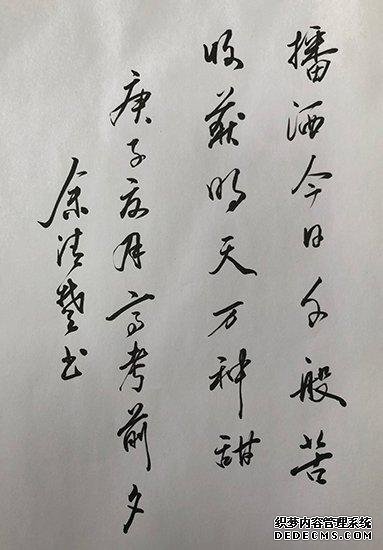 播洒今日千般苦
收获明天万种甜
庚子夏月高考前夕
余清楚书
织梦内容管理系统
DEDECMS.COM